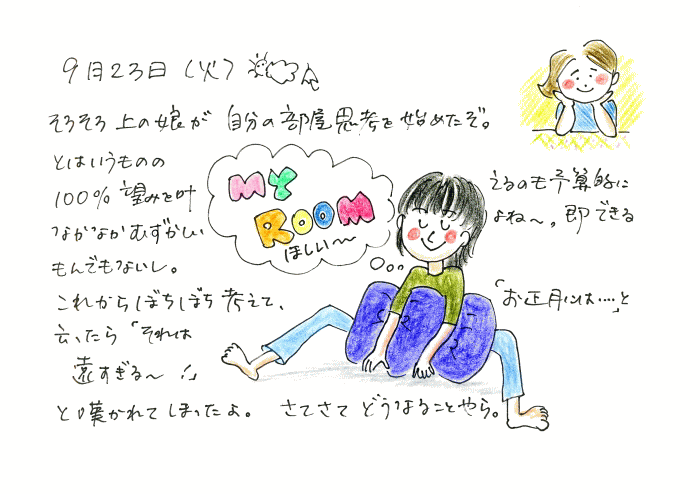 9月23日(火)
そろそろ上の娘が 自分の部屋思考を始めたぞ。
とはいうものの
100%望みを叶えるのも予算的に
なかなかむずかしいよね〜。即できる
もんでもないし。
これからぼちぼち考えて、「お正月には‥‥」と
言ったら「それは
遠すぎる〜!」
と嘆かれてしまったよ。 さてさてどうなることやら。
MY
ROOM
ほしい〜